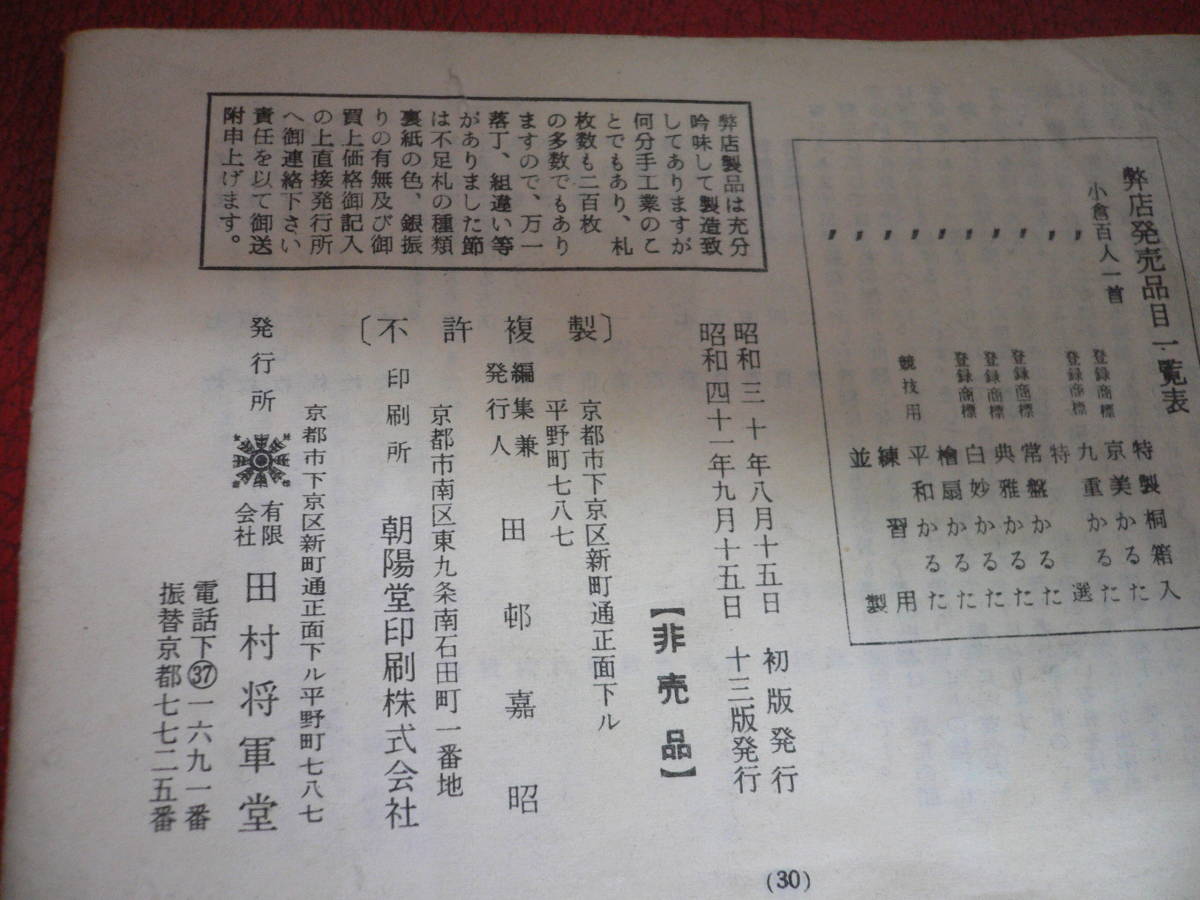 弊店発売品目一覧表
小倉百人一首
特製桐箱入
〃 登録商標 京美かるた
〃 登録商標 九重かるた
〃 特選
〃 登録商標 常盤かるた
〃 登録商標 典雅かるた
〃 登録商標 白妙かるた
〃 檜扇かるた
〃 競技用 平和かるた
〃 練習用
〃 並製
弊店製品は充分
吟味して製造致
してありますが
何分手工業のこ
とでもあり、札
枚数も二百枚
の多数でもあり
ますので、万一
落丁、組違い等
がありました節
は不足札の種類
裏紙の色、銀振
りの有無及び御
買上価格御記入
の上直接発行所
へ御連絡下さい
責任を以て御送
附申上げます。
昭和三十年八月十五日 初版発行
昭和四十一年九月十五日 十三版発行
【非売品】
〔不許複製〕
京都市下京区新町通正面下ル
平野町七八七
編集兼
発行人 田邨嘉昭
京都市南区東九条南石田町一番地
印刷所 朝陽堂印刷株式会社
京都市下京区新町通正面下ル平野町七八七
発行所 有限会社 田村将軍堂
電話下㊲一六九一番
振替京都七七二五番
(30)